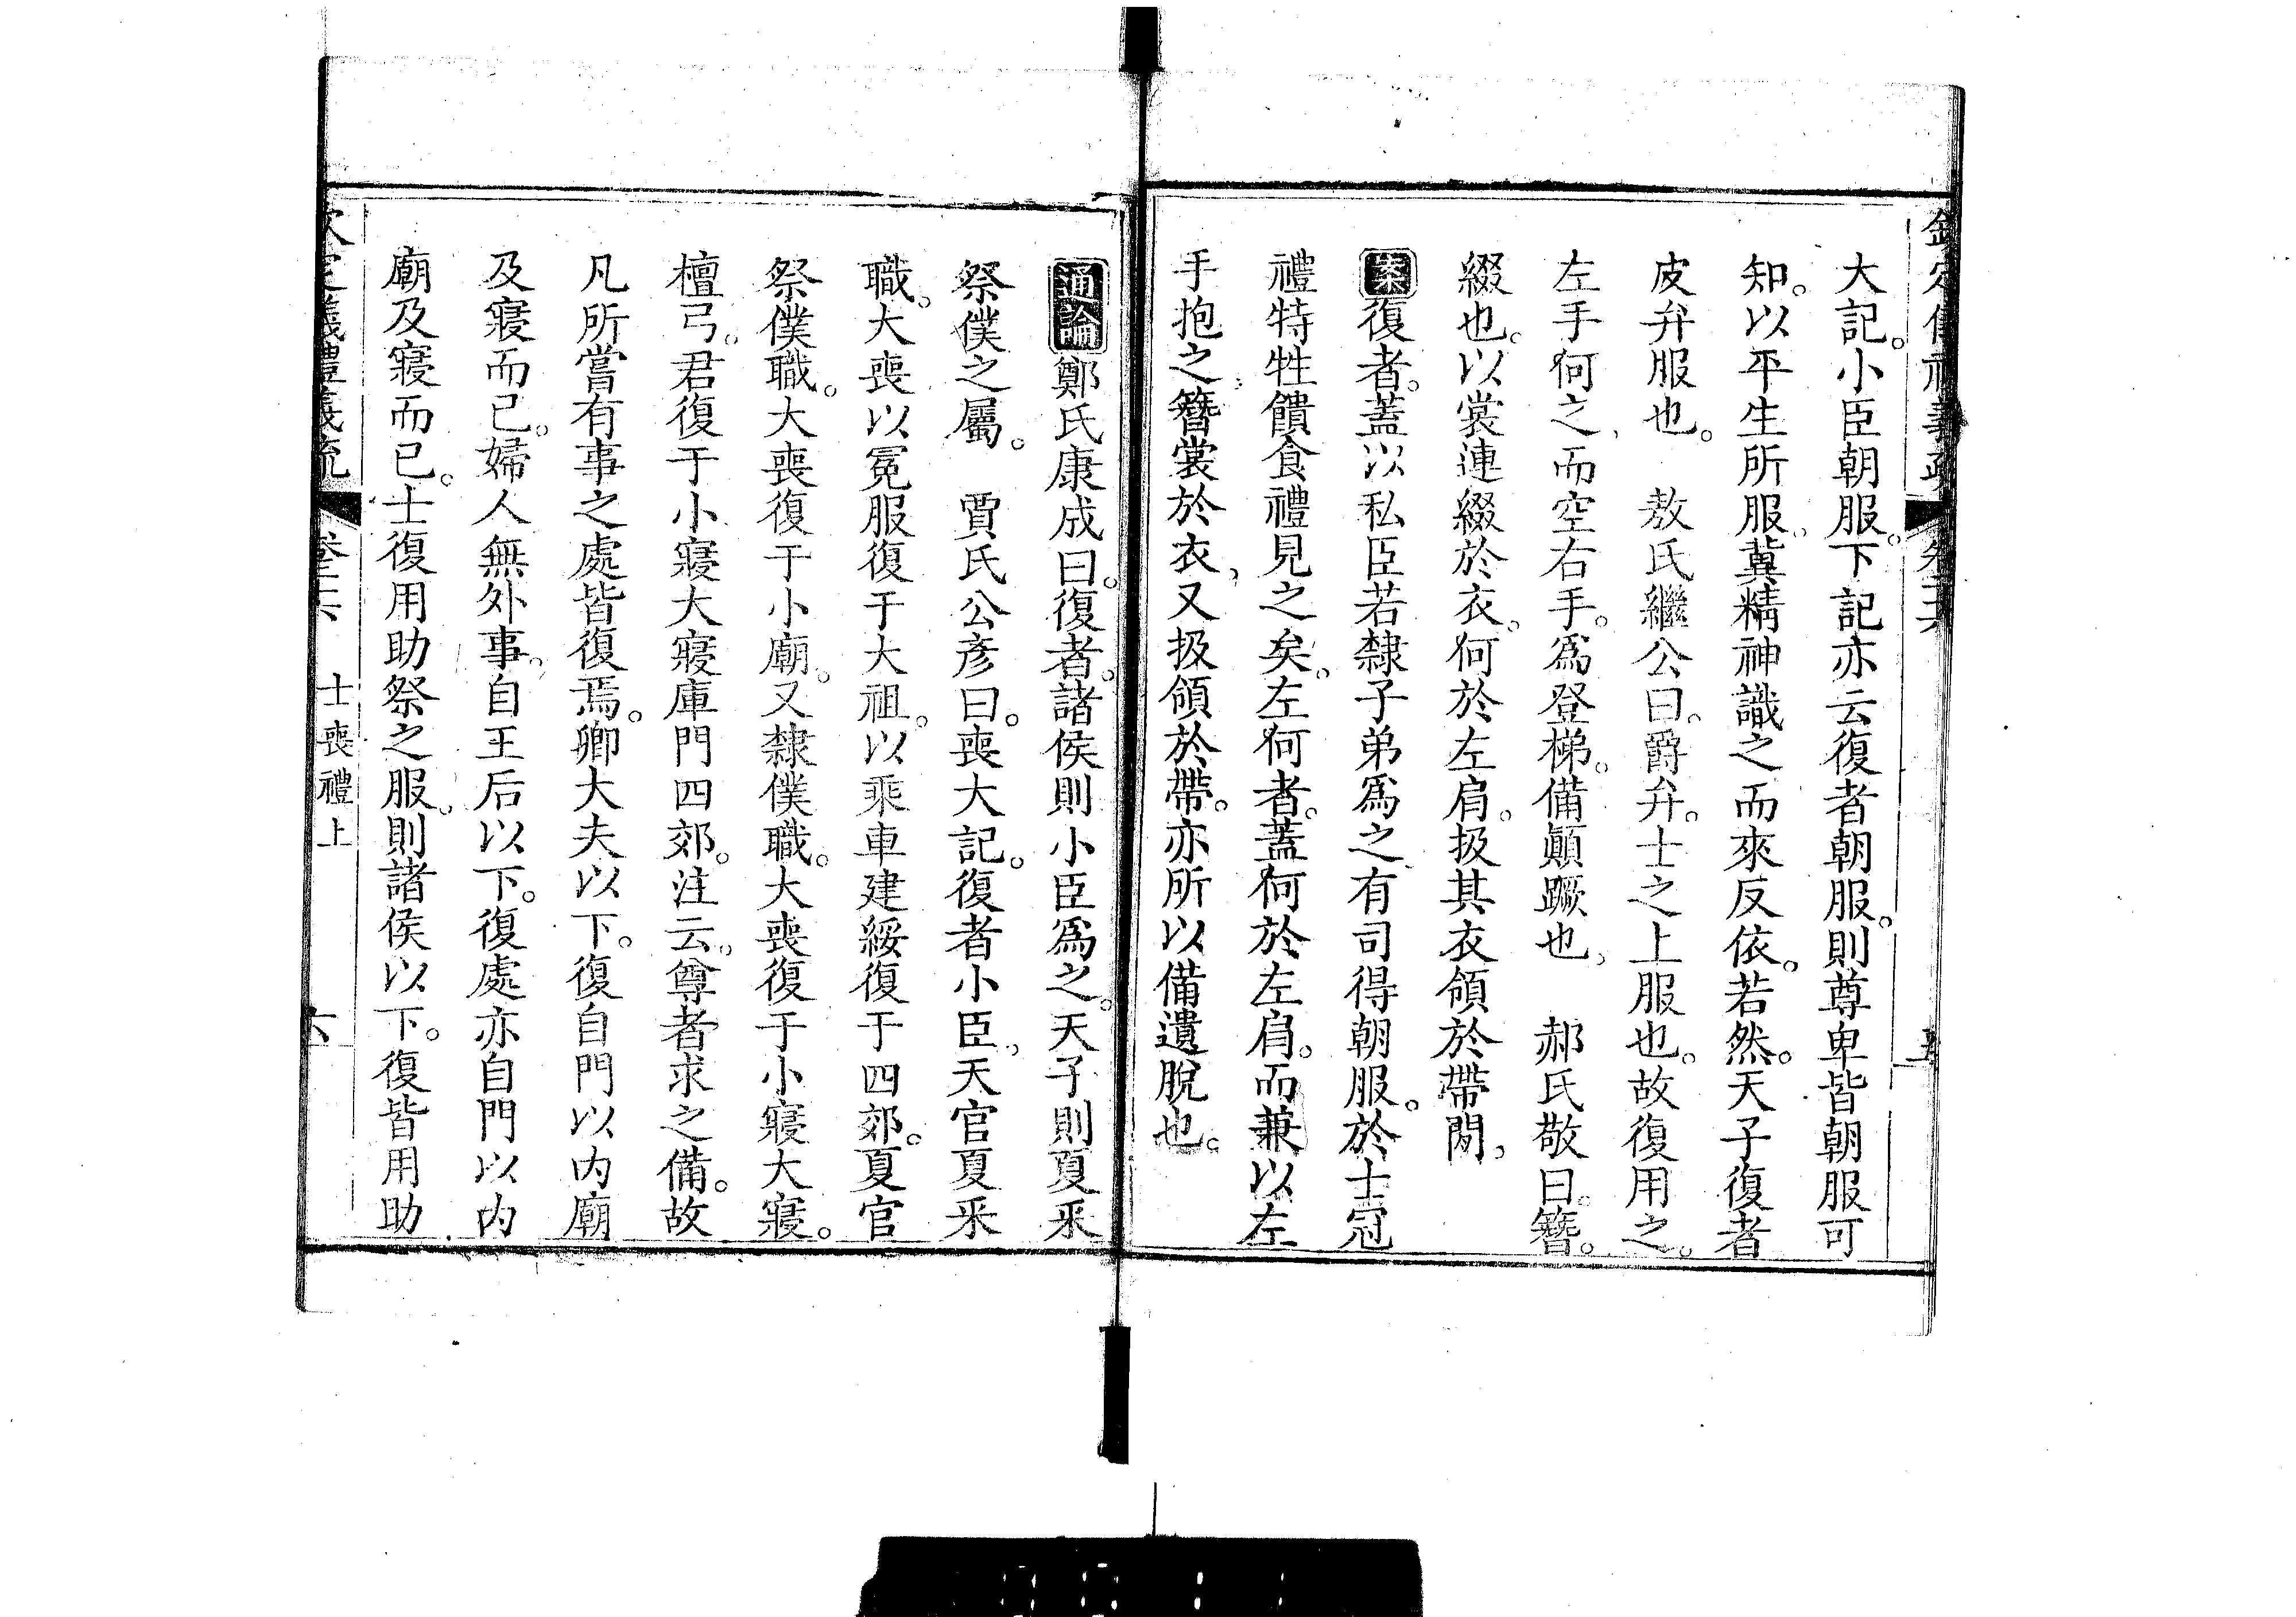 欽定儀禮義疏 卷二六
大記。小臣朝服。下記亦云復者朝服。則尊卑皆朝服可
知。以平生所服。冀精神識之而來反依。若然。天子復者
皮弁服也。 敖氏繼公曰。爵弁。士之上服也。故復用之。
左手何之、而空右手。爲登梯。備顚蹶也、 郝氏敬曰。簪。
綴也。以裳連綴於衣。何於左肩。扱其衣領於帶閒、
案復者。蓋以私臣若隸子弟爲之、有司得朝服。於士冠
禮特牲饋食禮見之矣。左何者。蓋何於左肩。而兼以左
手抱之、簪裳於衣、又扱領於帶。亦所以備遺脫也。
通論鄭氏康成曰。復者。諸侯則小臣爲之。天子則夏采
祭僕之屬。 賈氏公彥曰。喪大記。復者小臣、天官夏采
職。大喪以冕服復于大祖。以乘車建綏復于四郊。夏官
祭僕職。大喪復于小廟。又隸僕職。大喪復于小寢大寢。
檀弓。君復于小寢大寢庫門四郊。注云。尊者求之備。故
凡所嘗有事之處皆復焉。卿大夫以下。復自門以內廟
及寢而已。婦人無外事、自王后以下。復處亦自門以內
廟及寢而已。士復用助祭之服。則諸侯以下。復皆用助
欽定儀禮義疏 卷二六 士喪禮上 六